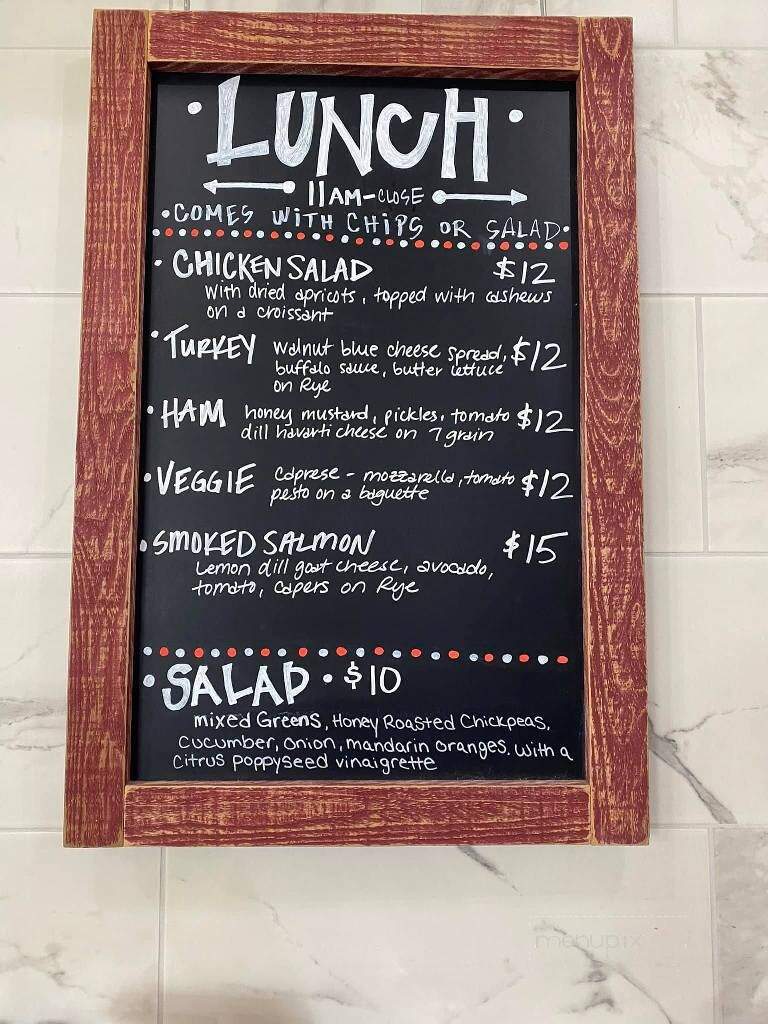 • LUNCH •
11AM-CLOSE
• COMES WITH CHIPS OR SALAD •
• CHICKEN SALAD $12
with dried apricots, topped with cashews
on a croissant
• TURKEY walnut blue cheese spread, $12
buffalo sauce, butter lettuce
on Rye
• HAM honey mustard, pickles, tomato $12
dill havarti cheese on 7 grain
• VEGGIE caprese - mozzarella, tomato $12
pesto on a baguette
• SMOKED SALMON $15
Lemon dill goat cheese, avocado,
tomato, capers on Rye
• SALAD • $10
mixed Greens, Honey Roasted Chickpeas,
Cucumber, Onion, mandarin oranges. with a
Citrus poppyseed vinaigrette
menupix